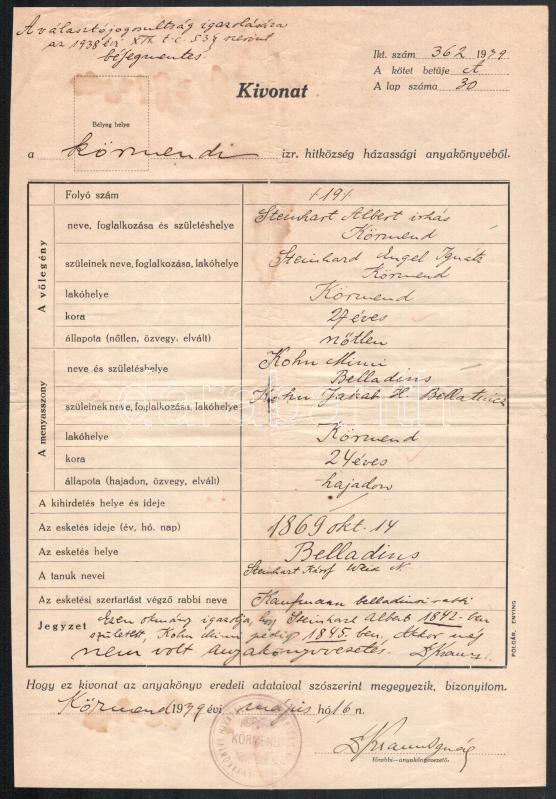 A választójogosultság igazolására
az 1938 évi XIX t.c. 53§ szerint
bélyegmentes
Ikt. szám 362 1939
A kötet betüje A
A lap száma 30
Kivonat
Bélyeg helye
a körmendi izr. hitközség házassági anyakönyvéből.
A vőlegény
Folyó szám
191
neve, foglalkozása és születéshelye Steinhart Albert irhás
Körmend
szüleinek neve, foglalkozása, lakóhelye Steinhard Engel Ignátz
Körmend
lakóhelye Körmend
kora 27 éves
állapota (nőtlen, özvegy, elvált) nőtlen
A menyasszony
neve és születéshelye Kohn Mimi
Belladins
szüleinek neve, foglalkozása, lakóhelye Kohn Jakab H Bellatincz
lakóhelye Körmend
kora 24 éves
állapota (hajadon, özvegy, elvált) hajadon
A kihirdetés helye és ideje
Az esketés ideje (év, hó, nap) 1869 okt. 14
Az esketés helye Belladins
A tanuk nevei Steinhart Weis
Az esketési szertartást végző rabbi neve Kaufmann belladinsi rabbi
Jegyzet Ezen okmány igazolja, hogy Steinhard Albert 1842-ben
született, Kohn Mimi pedig 1845-ben. Akkor még
nem volt anyakönyvvezetés. DKrausz
POLGÁR, ENYING
Hogy ez kivonat az anyakönyv eredeti adataival szószerint megegyezik, bizonyitom.
Körmend 1939 évi május hó 16 n.
KÖRMEND
DKrausz Ignác
főrabbi-anyakönyvvezető.
darabanth